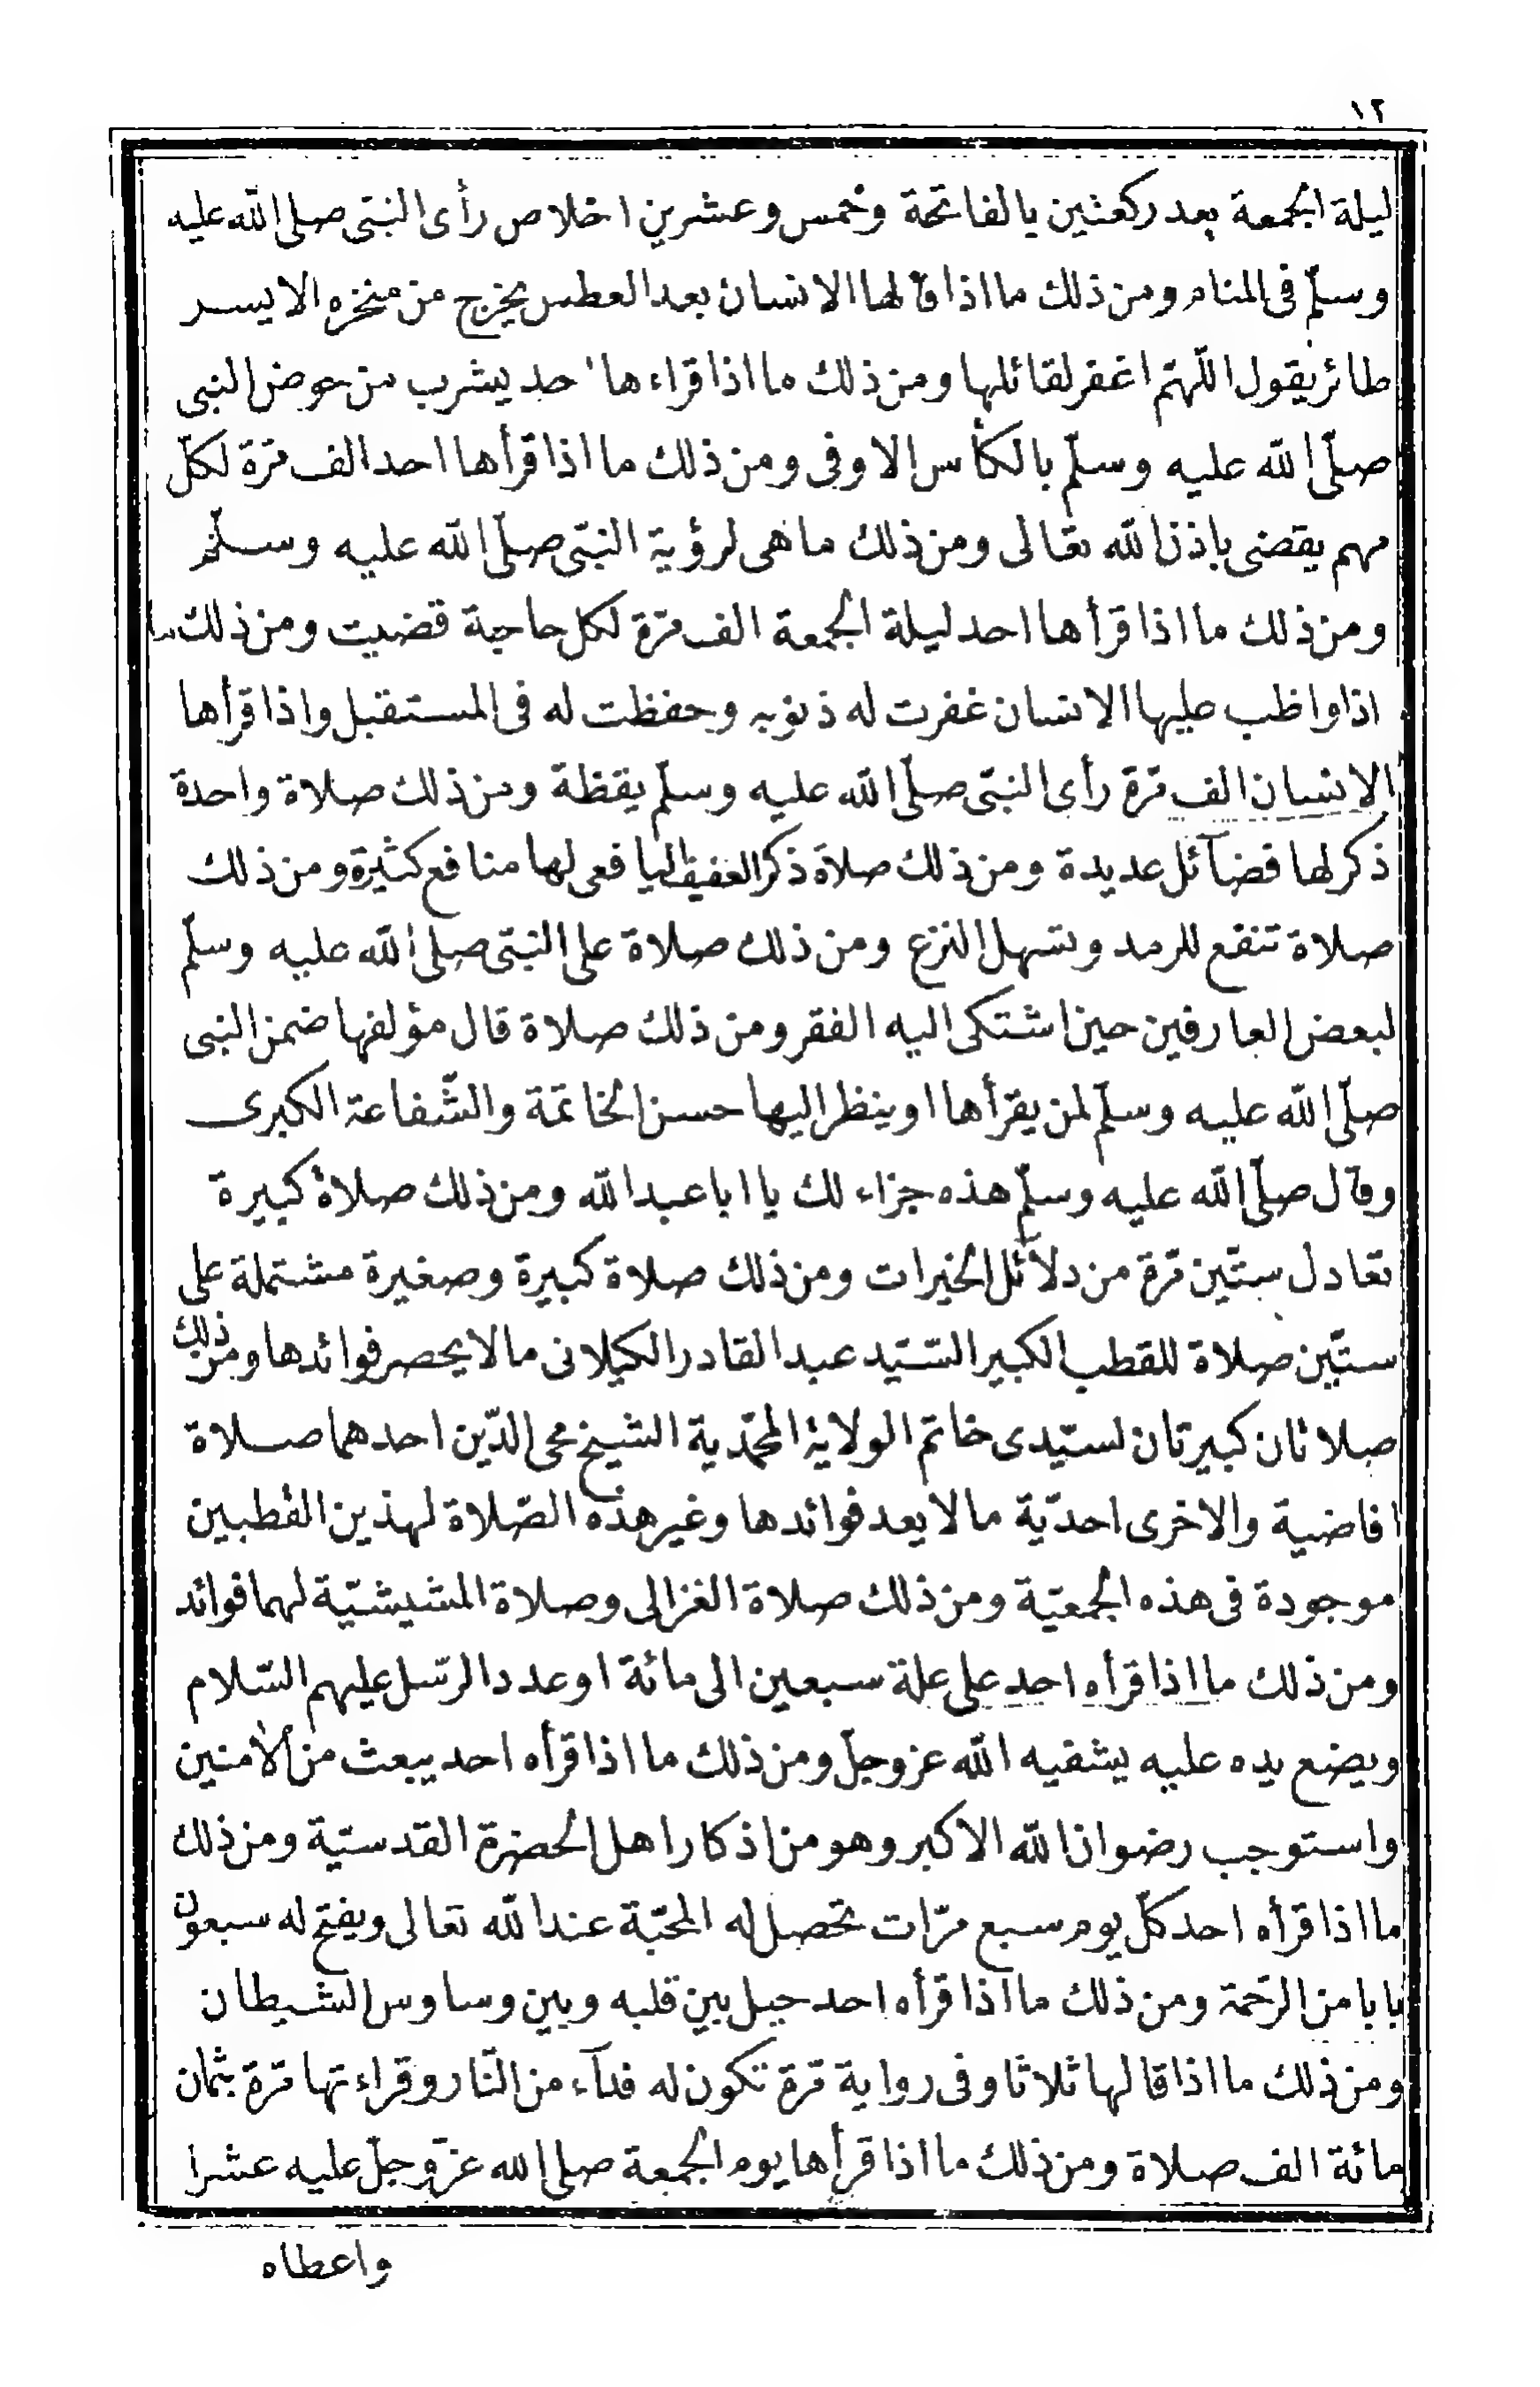 ١٢
ليلة الجمعة بعد ركعتين بالفاتحة وخمس وعشرين اخلاص رأى النبى صلى الله عليه
وسلم فى المنام ومن ذلك ما اذا قالها الانسان بعد العطس يخرج من منخره الايسر
طائر يقول اللهم اغفر لقائلها ومن ذلك ما اذا قراءها احد يشرب من حوض النبى
صلى الله عليه وسلم بالكأس الاوفى ومن ذلك ما اذا قرأها احد الف مرة لكل
مهم يقضى باذن الله تعالى ومن ذلك ما هى لرؤية النبى صلى الله عليه وسلم
ومن ذلك ما اذا قرأها احد ليلة الجمعة الف مرة لكل حاجة قضيت ومن ذلك ما
اذا واظب عليها الانسان غفرت له ذنوبه وحفظت له فى المستقبل واذا قرأها
الانسان الف مرة رأى النبى صلى الله عليه وسلم يقظة ومن ذلك صلاة واحدة
ذكر لها فضآئل عديدة ومن ذلك صلاة ذكر العفيف اليافعى لها منافع كثيرة ومن ذلك
صلاة تنفع للرمد وتسهل النزع ومن ذلك صلاة على النبى صلى الله عليه وسلم
لبعض العارفين حين اشتكى اليه الفقر ومن ذلك صلاة قال مؤلفها ضمن النبى
صلى الله عليه وسلم لمن يقرأها او ينظر اليها حسن الخاتمة والشفاعة الكبرى
وقال صلى الله عليه وسلم هذه جزاء لك يا ابا عبد الله ومن ذلك صلاة كبيرة
تعادل ستين مرة من دلائل الخيرات ومن ذلك صلاة كبيرة وصغيرة مشتملة على
ستين صلاة للقطب الكبير السيد عبد القادر الكيلانى ما لا يحصر فوائدها ومن ذلك
صلاتان كبيرتان لسيدى خاتم الولاية المحمدية الشيخ محى الدين احدهما صلاة
افاضية والاخرى احدية ما لا يعد فوائدها وغير هذه الصلاة لهذين القطبين
موجودة فى هذه الجمعية ومن ذلك صلاة الغزالى وصلاة المشيشية لهما فوائد
ومن ذلك ما اذا قرأه احد على علة سبعين الى مائة او عدد الرسل عليهم السلام
ويضع يده عليه يشفيه الله عز وجل ومن ذلك ما اذا قرأه احد يبعث من الأمنين
واستوجب رضوان الله الاكبر وهو من اذكار اهل الحضرة القدسية ومن ذلك
ما اذا قرأه احد كل يوم سبع مرات تحصل له المحبة عند الله تعالى ويفتح له سبعون
بابا من الرحمة ومن ذلك ما اذا قرأه احد حيل بين قلبه وبين وساوس الشيطان
ومن ذلك ما اذا قالها ثلاثا وفى رواية مرة تكون له فدآء من النار وقراءتها مرة بثمان
مائة الف صلاة ومن ذلك ما اذا قرأها يوم الجمعة صلى الله عز وجل عليه عشرا
واعطاه